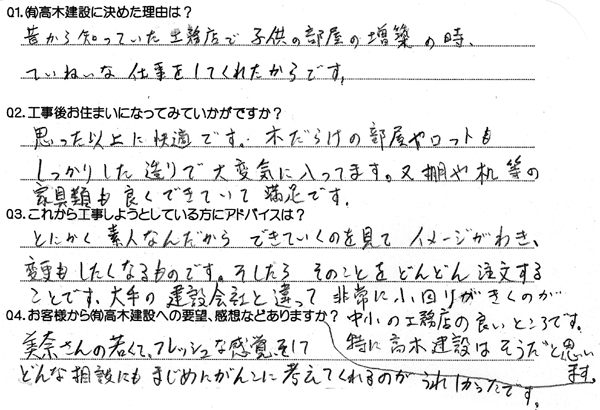 Q1.㈲高木建設に決めた理由は?
昔から知っていた工務店で子供の部屋の増築の時、
ていねいな仕事をしてくれたからです。
Q2.工事後お住まいになってみていかがですか?
思った以上に快適です。木だらけの部屋やロフトも
しっかりした造りで大変気に入ってます。又棚や机等の
家具類も良くできていて満足です。
Q3.これから工事しようとしている方にアドバイスは?
とにかく素人なんだからできていくのを見てイメージがわき、
変更もしたくなるものです。そしたらそのことをどんどん注文する
ことです。大手の建設会社と違って非常に小回りがきくのが
中小の工務店の良いところです。
特に高木建設はそうだと思い
ます。
Q4.お客様から㈲高木建設への要望、感想などありますか?
美奈さんの若くて、フレッシュな感覚、そして
どんな相談にもまじめにがんこに考えてくれるのがうれしかったです。